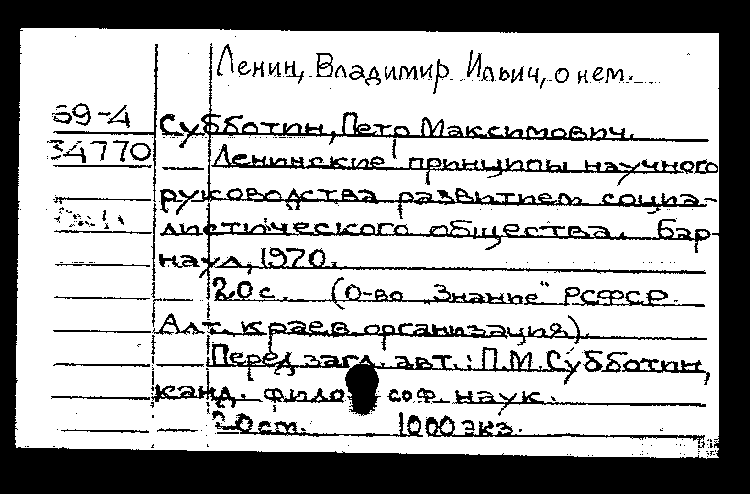 Ленин, Владимир Ильич, о нем.
69-4
Субботин, Петр Максимович.
34770
Ленинские принципы научного
руководства развитием социа-
листического общества. Бар-
наул, 1970.
20 с. (О-во "Знание" РСФСР.
Алт. краев. организация).
Перед загл. авт.: П.М. Субботин,
канд. философ. наук.
20 ст. 1000 экз.